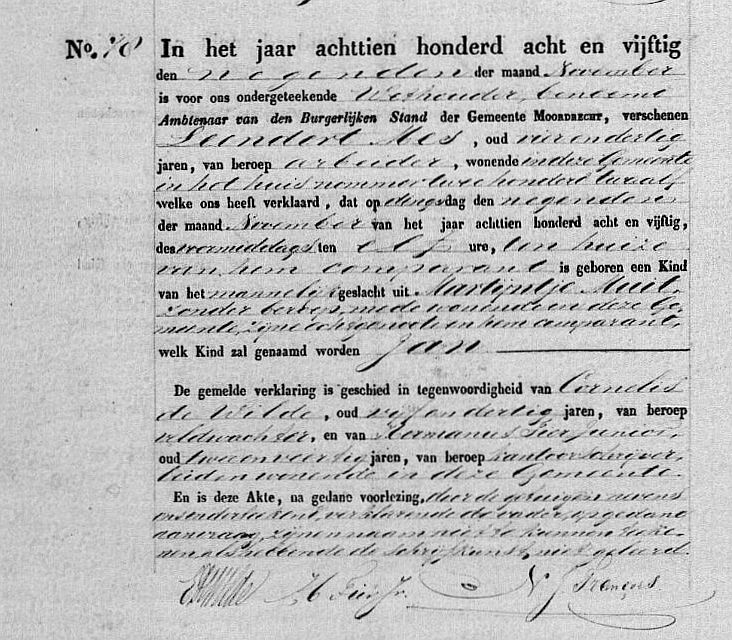 No. 78 In het jaar achttien honderd acht en vijftig
den negenden der maand November
is voor ons ondergeteekende Wethouder, benoemd
Ambtenaar van den Burgerlijken Stand der Gemeente MOORDRECHT, verschenen
Leendert Mes, oud vier en dertig
jaren, van beroep arbeider, wonende in deze Gemeente
in het huis nommer twee honderd twaalf
welke ons heeft verklaard, dat op dingsdag den negenden
der maand November van het jaar achttien honderd acht en vijftig,
des voormiddags ten elf ure, ten huize
van hem comparant is geboren een Kind
van het mannelijk geslacht uit Martijntje Muit,
zonder beroep, mede wonende in deze Ge
meente, zijne echtgenoote en hem comparant,
welk Kind zal genaamd worden Jan
De gemelde verklaring is geschied in tegenwoordigheid van Cornelis
de Wilde, oud vijf en dertig jaren, van beroep
veldwachter, en van Hermanus Fier Junior,
oud twee en veertig jaren, van beroep kantoorschrijver,
beiden wonende in deze Gemeente.
En is deze Akte, na gedane voorlezing, door de getuigen nevens
ons onderteekend, verklarende de vader, op gedane
aanvraag, zijnen naam niet te kunnen teeke
nen als hebbende de schrijfkunst niet geleerd.
de Wilde H Fier Jr. François